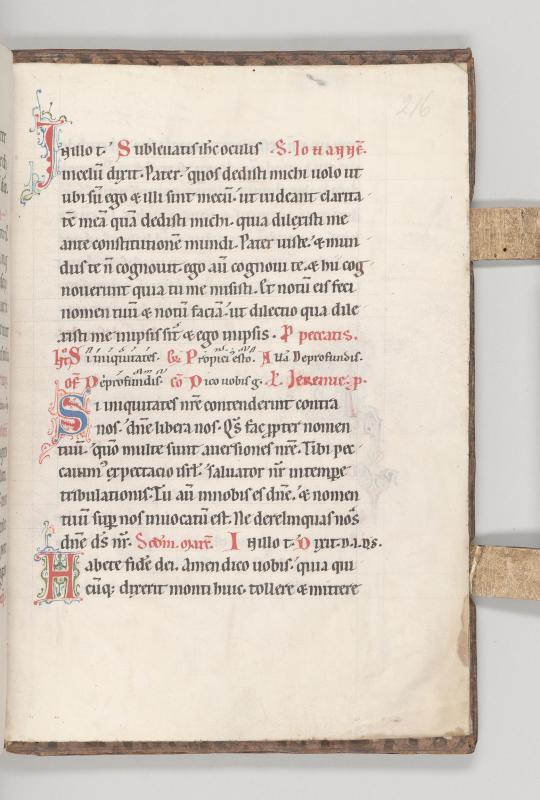 216
In illo t. Sublevatis ihc oculis .S. Iohanne.
in celū dixit. Pater. quos dedisti michi volo ut
ubi sū ego & illi sint mecū. ut videant clarita
tē meā quā dedisti michi. quia dilexisti me
ante constitutionē mundi. Pater iuste. & mun
dus te ñ cognovit. ego aū cognovi te. & hi cog
noverunt quia tu me misisti. Et notū eis feci
nomen tuū & notū faciā. ut dilectio qua dile
xisti me in ipsis sit & ego in ipsis. P peccatis.
Si iniquitates. Propici esto. All'a De profundis.
of De profundis. cō Dico vobis g. L. Jeremie. p.
Si iniquitates nrē contenderint contra
nos. dñe libera nos. Qs̄ fac ppter nomen
tuū. qm̄ multe sunt aversiones nrē. Tibi pec
cavim' expectacio isrl. salvator ñr in tempre
tribulationis. Tu aū in nobis es dñe. & nomen
tuū sup nos invocatū est. Ne derelinquas nos
dñe ds̄ ñr. Scdm. marc. In illo t. Dixit. i. d. s.
Habete fidē dei. amen dico vobis. quia qui
cūq; dixerit monti huic. tollere & mittere